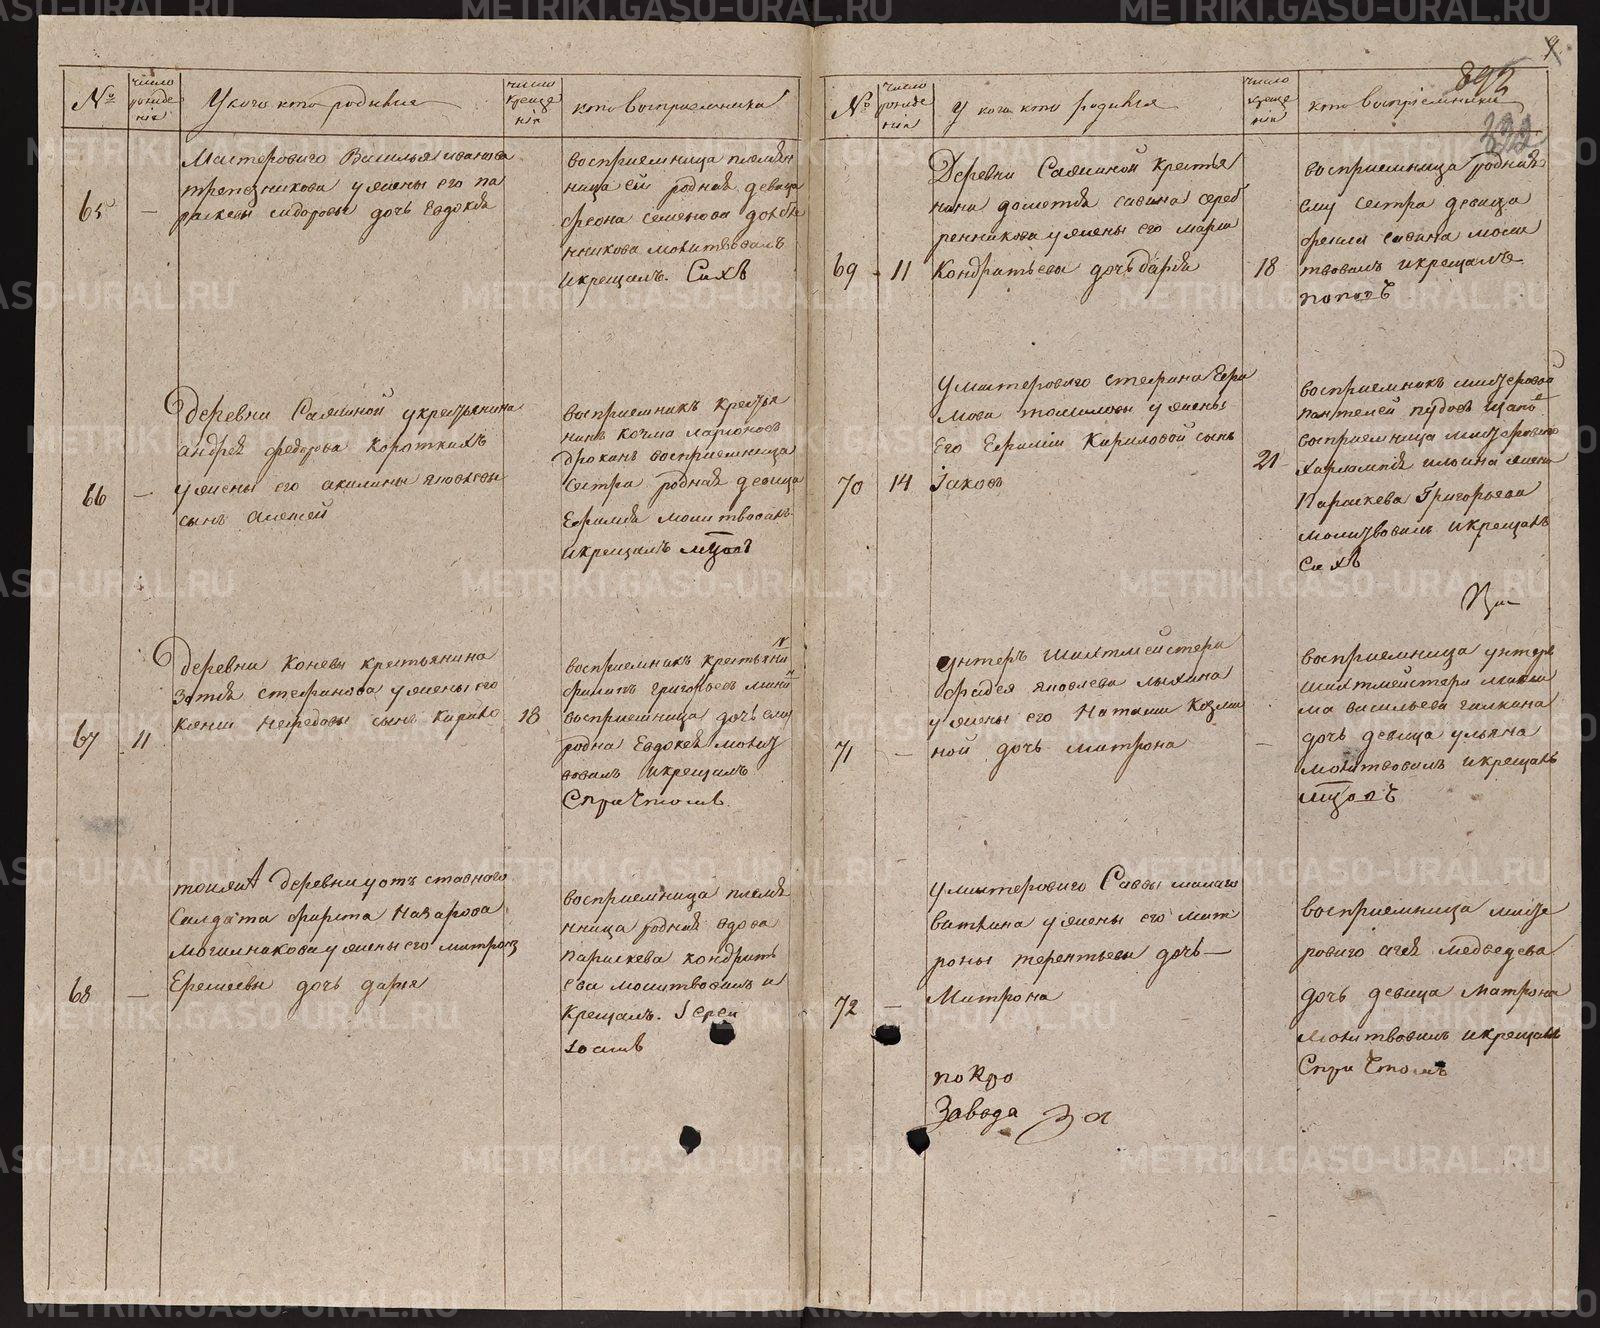 №
число рожде нія
У кого кто родился
число креще нія
кто восприемники
65
—
Мастероваго Василья иванова
трапезникова у жены его па
раскевы сидоровы дочь Евдокія
восприемница племян
ница ей родная девица
феона семенова
молитвовалъ
и крещалъ.
66
—
Деревни Саминой у крестьянина
андрея федорова Короткихъ
у жены его акилины яковлевы
сынъ Алексей
восприемникъ крестья
нинъ козма ларионовъ
восприемница
сестра родная девица
Евфимия молитвовалъ
и крещалъ
67
11
Деревни Коневы крестьянина
Зотея стефанова у жены его
ксении нефедовы сынъ Кирило
18
восприемникъ крестьяни
филипъ григорьевъ мини
восприемница дочь ему
родна Евдокея молит
вовалъ и крещалъ
68
—
тояжъ деревни у отъставнаго
Салдата фирста Назарова
Могилникова у жены его матроны
Еремеевы дочь дарья
восприемница племя
нница родная вдова
параскева кондрать
ева молитвовалъ и
крещалъ. Іерей
892
9
№
число рожде нія
у кого кто родился
число креще нія
кто восприемники
69
11
Деревни Саминой крестья
нина дометия савина сереб
ренникова у жены его марьи
Кондратьевы дочь дарья
18
восприемница родная
ему сестра девица
савина моли
твовалъ и крещалъ
попозъ
70
14
У мастероваго стефана Ефи
мова томилова у жены
Его Евфимии Кириловой сынъ
Іаковъ
21
восприемникъ мастеровой
пантелей пудовъ
восприемница мастероваго
Харлампия ильина жена
Параскева Григорьева
молитвовалъ и крещалъ
71
—
унтеръ шихтмейстера
фадея яковлева лыхина
у жены его Наталии Козми
ной дочь матрона
—
восприемница унтеръ
шихтмейстера макси
ма васильева галкина
дочь девица ульяна
молитвовалъ и крещалъ
72
—
У мастероваго Саввы
у жены его мат
роны терентьевы дочь —
Матрона
восприемница масте
роваго агея медведева
дочь девица матрона
молитвовалъ и крещалъ
Завода
METRIKI.GASO-URAL.RU